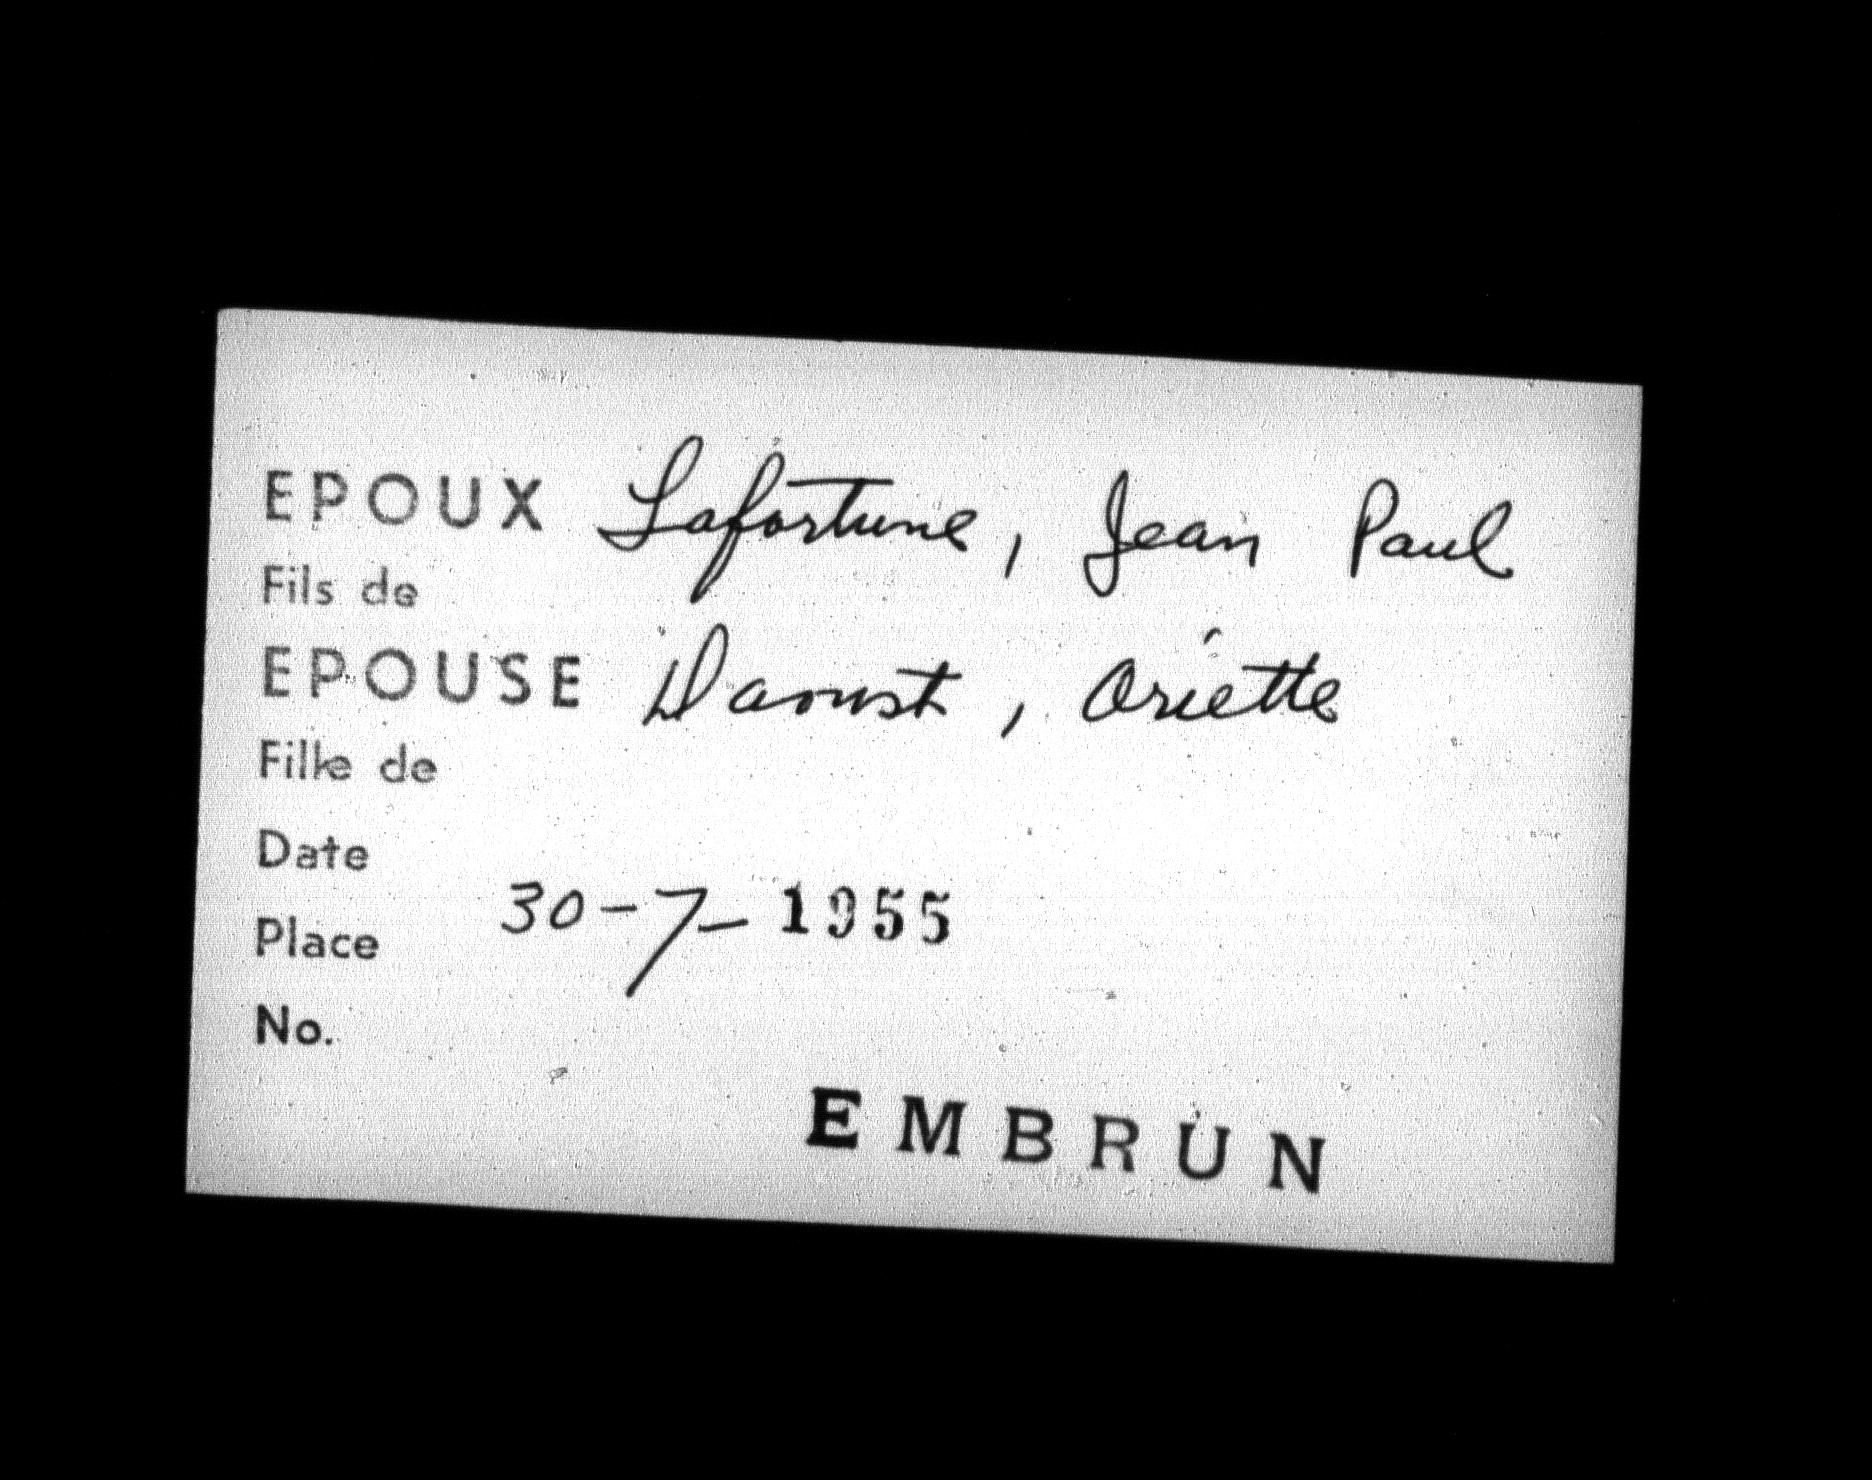 EPOUX Lafortune, Jean Paul
Fils de
EPOUSE Daoust, Oriette
Fille de
Date
30-7-1955
Place
No.
EMBRUN